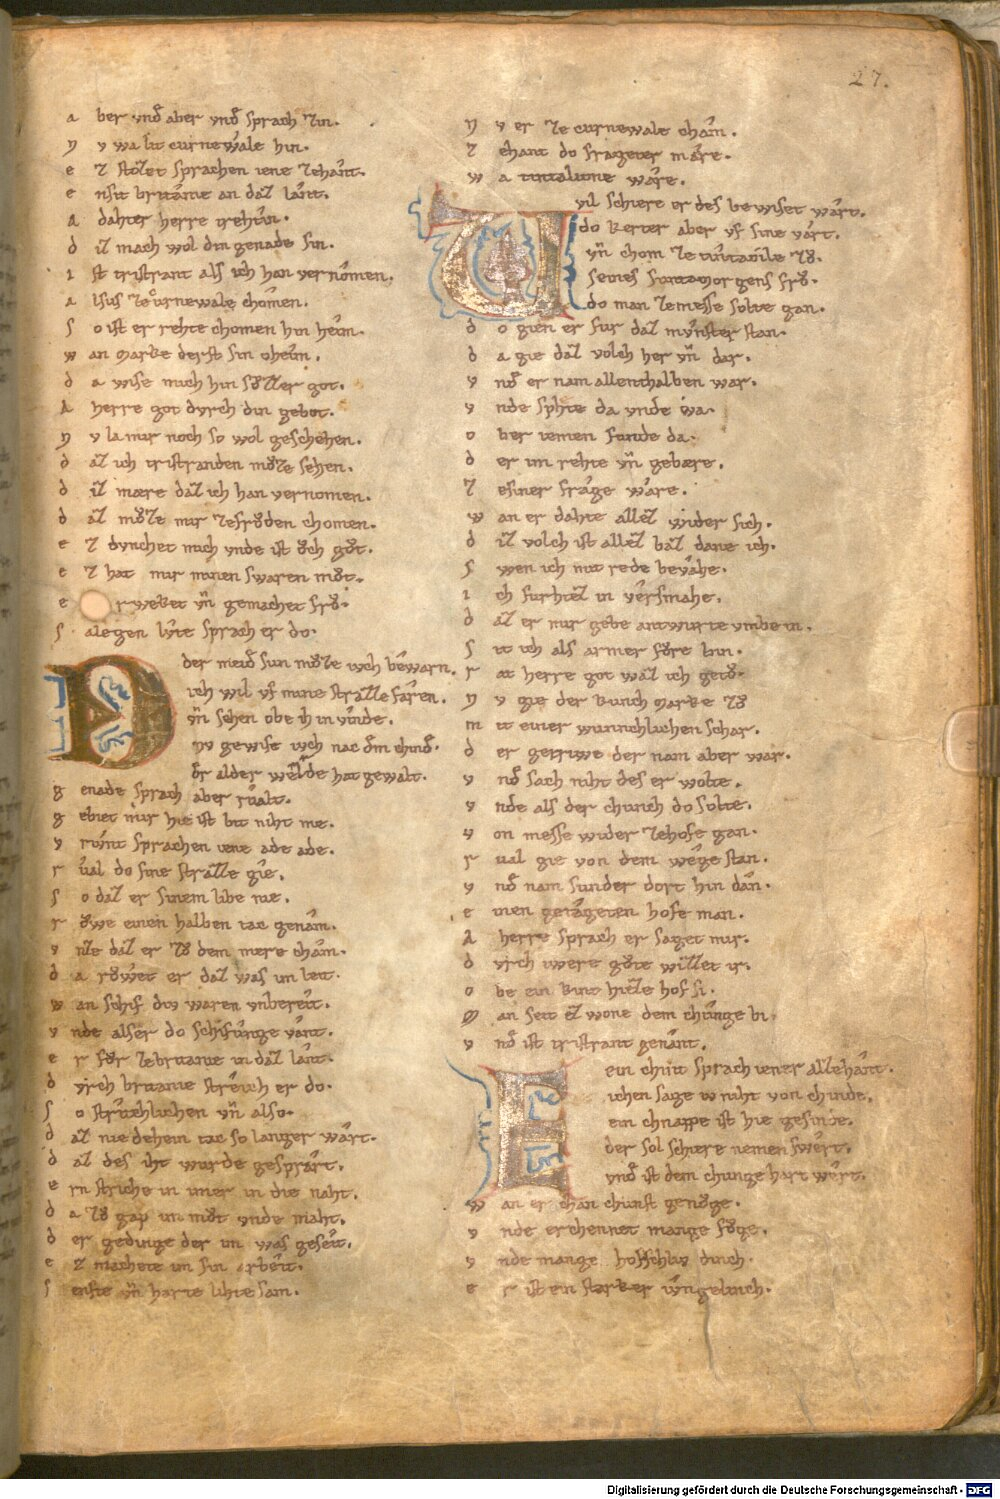 27.
a ber vnd aber vnd sprach zin.
n v wa lit curnewale hin.
e z stozet sprachen iene zehant.
e nsit britanie an daz lant.
a dahter herre trehtin.
d iz mach wol din genade sin.
i st tristrant als ich han vernomen.
a lsus ze curnewale chomen.
s o ist er rehte chomen hin heim.
w an Marke derst sin oheim.
d a wise mich hin sůzzer got.
A herre got dvrch din gebot.
n v la mir noch so wol geschehen.
d az ich tristranden můze sehen.
d iz mære daz ich han vernomen.
d az můze mir zefrőden chomen.
e z dvnchet mich vnde ist őch gůt.
e z hat mir minen swaren můt.
e rweket vn̄ gemachet fro.
s alegen lvte sprach er do.
D der meid sun můze ivch bewarn.
ich wil vf mine strazze faren.
vn̄ sehen obe ih in vinde.
nv gewise ivch nac dem chind.
der alder welde hat gewalt.
g enade sprach aber rualt.
g ebiet mir hie ist bit niht me.
v rivnt sprachen iene ade ade.
r ual do sine strazze gie.
s o daz er sinem libe nie.
r ůwe einen halben tac genam.
v nze daz er zů dem mere cham.
d a růwet er daz was im leit.
w an schif div waren vnbereit.
v nde alser do schifunge vant.
e r fůr zebritanie in daz lant.
d vrch britanie streich er do.
s o strichlichen vn̄ also.
d az nie dehein tac so langer wart.
d az des iht wurde gespart.
e rn striche in imer in die naht.
d a zů gap im můt vnde maht.
d er gedinge der im was geseit.
e z machete im sin arbeit.
s enfte vn̄ harte lihte sam.
n v er ze curnewale cham.
z ehant do frageter mære.
w a tintaliune wære.
vil schiere er des bewiset wart.
do kerter aber vf sine vart.
vn̄ chom ze tintaoile zů.
seines suntamorgens frů.
do man zemesse solte gan.
d o gien er fur daz mvnster stan.
d a gie daz volch her vn̄ dar.
v nd er nam allenthalben war.
v nde sphte da vnde wa.
o ber iemen funde da.
d er im rehte vn̄ gebære.
z esiner frage wære.
w an er dahte allez wider sich.
d iz volch ist allez baz dane ich.
s wen ich mit rede bevahe.
i ch furhtez in versmahe.
d az er mir gebe antwurte vmbe in.
s it ich als armer fůre bin.
r at herre got waz ich getů.
n v gie der kunich Marke zů
m it einer wunnichlichen schar.
d er getriwe der nam aber war.
v nd sach niht des er wolte.
v nde als der chunich do solte.
v on messe wider zehofe gan.
r ual gie von dem wege stan.
v nd nam sunder dort hin dan.
e inen getageten hofe man.
A herre sprach er saget mir.
d vrch iwere gůte willet ir.
o be ein kint hieze hof si.
M an seit ez wone dem chunge bi.
v nd ist tristrant genant.
E ein chint sprach iener allehant.
ichen sage iv niht von chinde.
ein chnappe ist hie gesinde.
der sol schiere nemen swert.
vnd ist dem chunge hart wert.
w an er chan chunst genőge.
v nde erchennet mange fůge.
v nde mange hofschliv dinch.
e r ist ein starker ivngelinch.
Digitalisierung gefördert durch die Deutsche Forschungsgemeinschaft - DFG